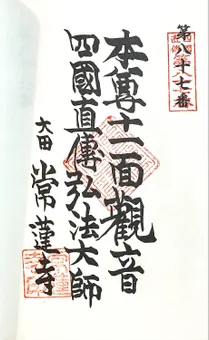 第八十七番
本尊十一面觀音
四國直傳弘法大師
大田
常蓮寺